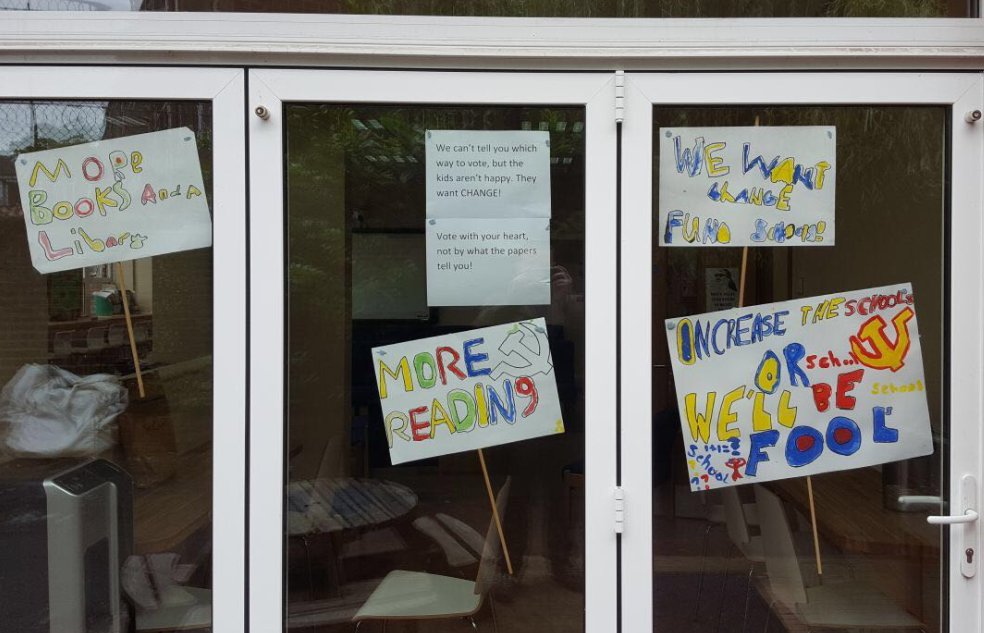 MORe
BOOKS And A
Librarz
We can't tell you which
way to vote, but the
kids aren't happy. They
want CHANGE!
Vote with your heart,
not by what the papers
tell you!
MORE
READING
WE WANT
CHANGE
FUND Schools!!
INCREASE THE SCHOOL'S
OR school
WE'LL BE schools
FOOL'S
school 1+1=2